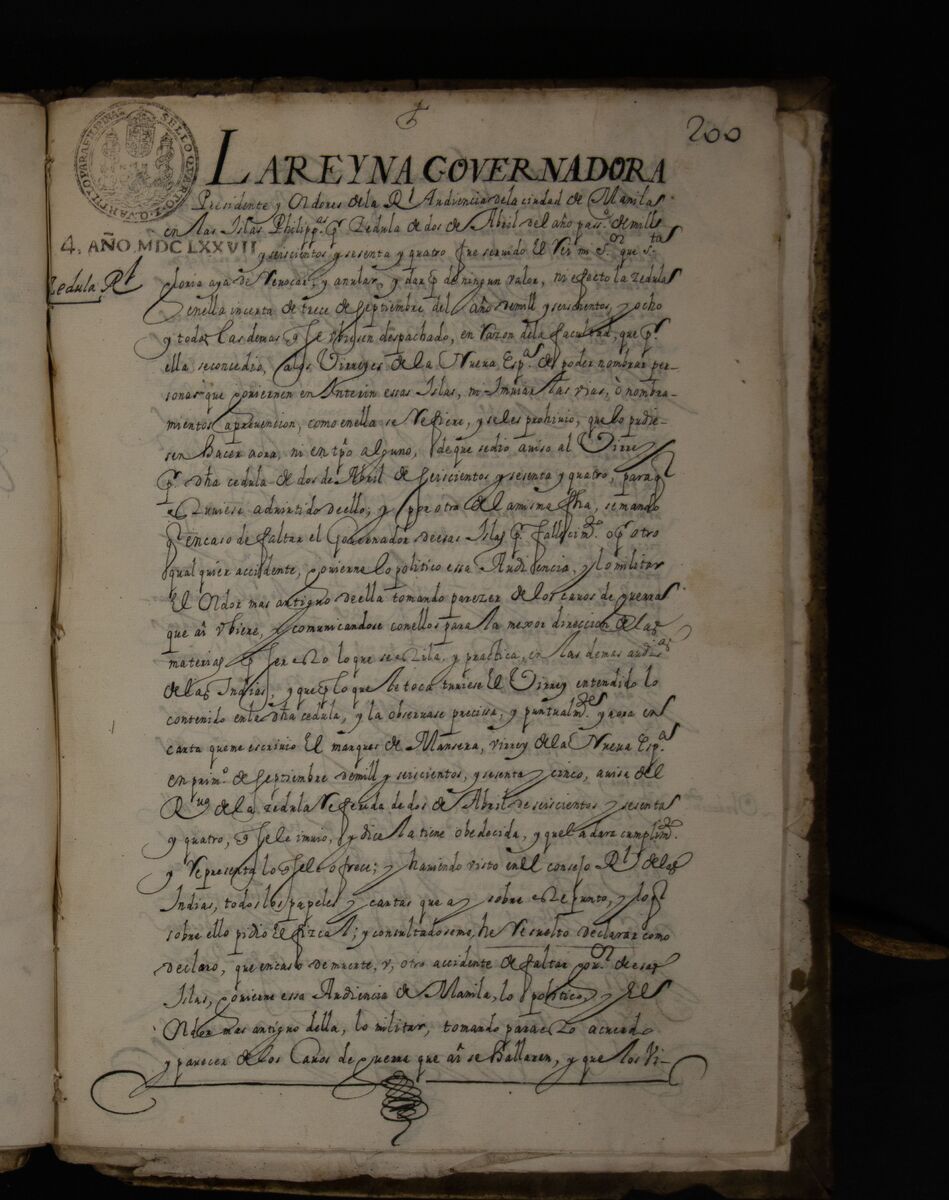 200
SELLO QVARTO
LA REYNA GOVERNADORA
Presidente y Oidores de la Rl Audiencia de la ciudad de Manila
en las Islas Philipp.s Pr Zedula de dos de Abril del año pass.o de mill
4. AÑO. MDCLXXVII
y seiscientos y sesenta y quatro fue seruido el Rei mi S.or que s.ta
Zedula Rl
gloria aya de Reuocar, y anular, y dar por de ningun valor, ni efecto la zedula
en ella incerta de trece de septiembre del año de mill y seiscientos, y ocho
y todas las demas q se vbiesen despachado, en razon de la facultad, que pr
ella se concedio, a los Virreyes de la Nueua Esp.a de poder nombrar per-
sonas que gouiernen en Interin essas Islas, ni imuiar las vias, o nombra-
mientos a preuencion, como en ella se Refiere, y se les prohiuio, que lo pudie-
sen hacer aora, ni en tpo alguno, de que se dio auiso al Virrey
Pr dha cedula de dos de Abril de seiscientos y sesenta y quatro, para q
estuuiese aduirtido de ello, y por otra de la misma fha, se mando
qe en caso de faltar el Gouernador de esas Islas pr fallecim.to o pr otro
qual quier accidente, gouierne lo politico essa Audiencia, y lo militar
El Oidor mas antiguo de ella tomando parezer de los cauos de guerra
que ai vbiere, y comunicandose con ellos para la mexor direccion de las
materias, por ser esto lo que se estila, y practica, en las demas audi.as
de las Indias, y que por lo que le toca tuuiese El Virrey entendido lo
contenido en la dha cedula, y la obseruase precissa, y puntualm.te y aora en
carta que me escriuio El marques de Mansera, virrey de la Nueua Esp.a
en prim.o de septiembre de mill y seiscientos, y sesenta y cinco, auisa del
de la zedula Referida de dos de Abril de seiscientos y sesenta
y quatro, q se le imuio, y dice la tiene obedecida, y que la dara cumplim.to
y Representa lo q se le ofrece; y hauiendo visto en el consejo Rl de las
Indias, todos los papeles y cartas que ay sobre este punto, y lo q
sobre ello pidio el fiscal; y consultadoseme, he Resuelto declarar como
declaro, que en caso de muerte, v, otro accidente de faltar gou.or de esas
Islas, gouierne essa Audiencia de Manila, lo politico, y El
Oidor mas antiguo della, lo militar, tomando para esto acuerdo
y parecer de los Cauos de guerra que ai se hallaren, y que los Vi-